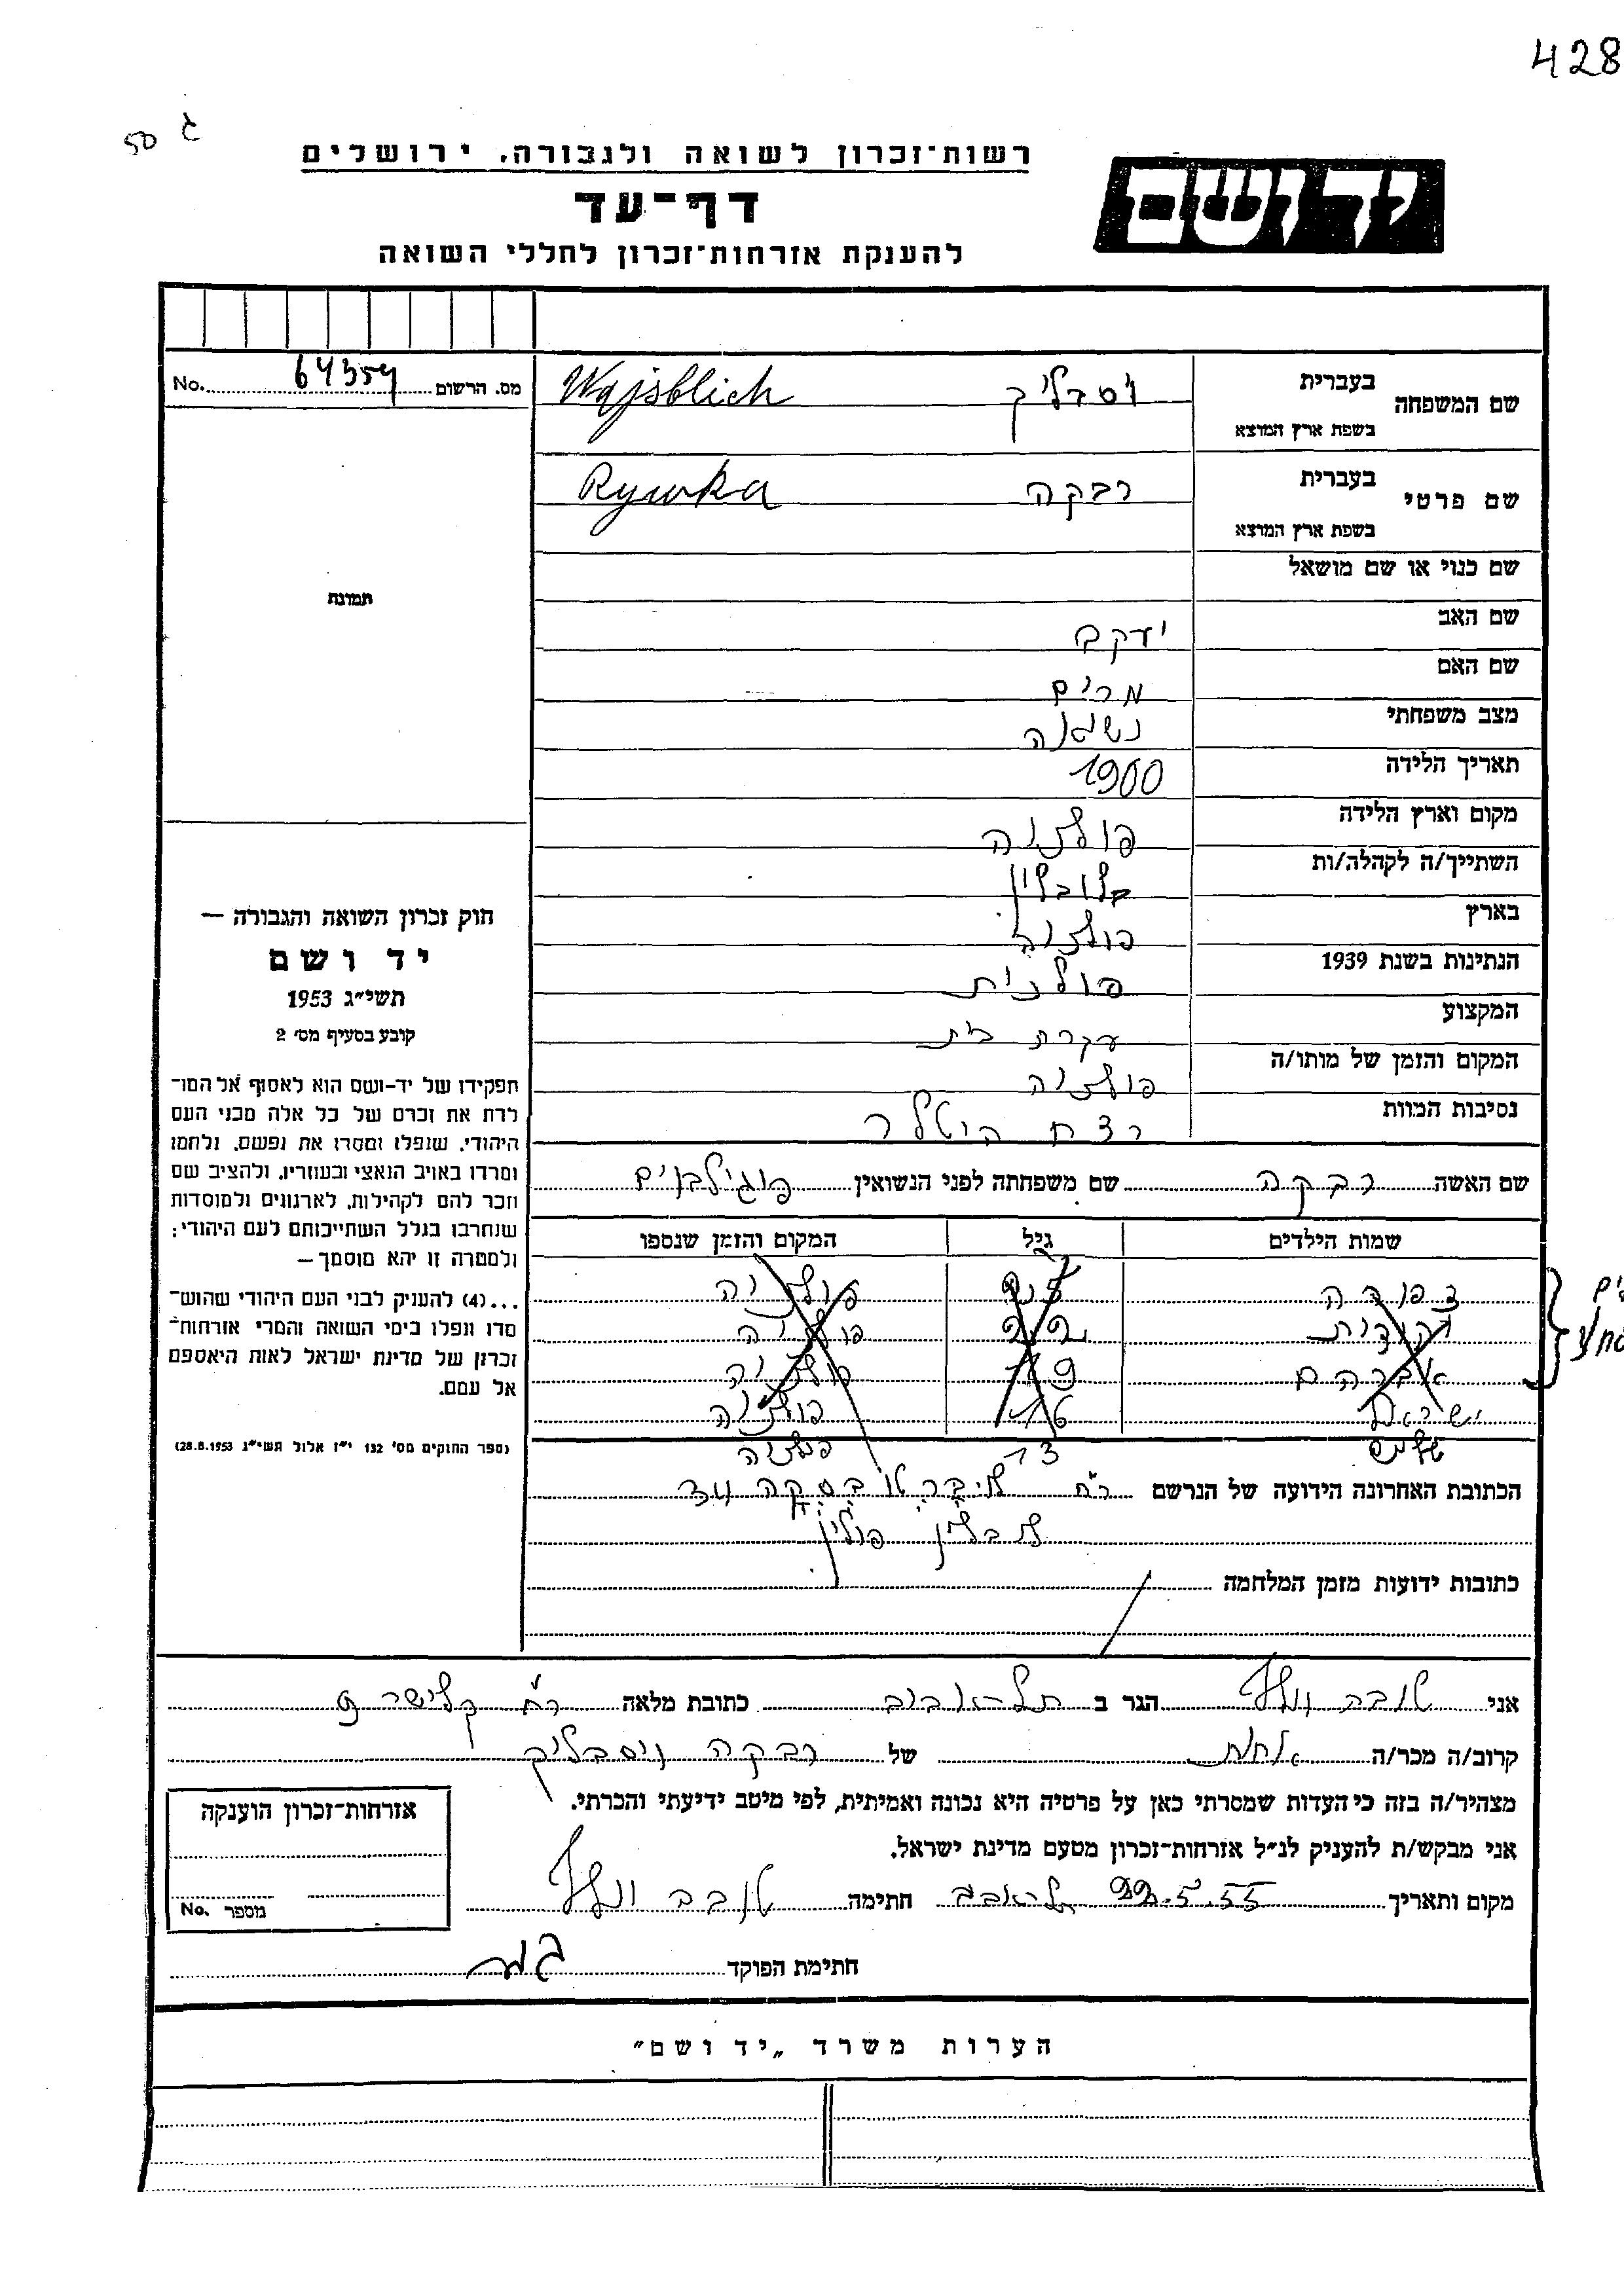 428
50 ג
רשות־זכרון לשואה ולגבורה, ירושלים
יד ושם
דף־עד
להענקת אזרחות־זכרון לחללי השואה
מס. הרשום No. 64359
שם המשפחה
בעברית
בשפת ארץ המוצא
ויסבליך Wajsblich
שם פרטי
בעברית
בשפת ארץ המוצא
רבקה Rywka
שם כנוי או שם מושאל
שם האב יעקב
שם האם מרים
מצב משפחתי נשואה
תאריך הלידה 1900
מקום וארץ הלידה פולניה
השתייך/ה לקהלה/ות בלובלין
בארץ פולניה
הנתינות בשנת 1939 פולנית
המקצוע עקרת בית
המקום והזמן של מותו/ה פולניה
נסיבות המוות רצח היטלר
שם האשה רבקה שם משפחתה לפני הנשואין
שמות הילדים גיל המקום והזמן שנספו
צפורה פולניה
יהודית 22 פולניה
אברהם 19 פולניה
ישראל 16 פולניה
שלום 13 פולניה
הכתובת האחרונה הידועה של הנרשם רח' 34
לובלין פולין
כתובות ידועות מזמן המלחמה
תמונה
חוק זכרון השואה והגבורה —
יד ושם
תשי״ג 1953
קובע בסעיף מס׳ 2
תפקידו של יד־ושם הוא לאסוף אל המו־
לדת את זכרם של כל אלה מבני העם
היהודי, שנפלו ומסרו את נפשם, נלחמו
ומרדו באויב הנאצי ובעוזריו, ולהציב שם
וזכר להם לקהילות, לארגונים ולמוסדות
שנחרבו בגלל השתייכותם לעם היהודי;
ולמטרה זו יהא מוסמך—
...(4) להעניק לבני העם היהודי שהוש־
מדו ונפלו בימי השואה והמרי אזרחות־
זכרון של מדינת ישראל לאות היאספם
אל עמם.
(ספר החוקים מס׳ 132 י״ז אלול תשי״ג 28.8.1953)
אני טובה וולף הגר ב תל־אביב כתובת מלאה רח' קלישר 9
קרוב/ה מכר/ה אחות של רבקה ויסבליך
מצהיר/ה בזה כי העדות שמסרתי כאן על פרטיה היא נכונה ואמיתית, לפי מיטב ידיעתי והכרתי.
אני מבקש/ת להעניק לנ״ל אזרחות־זכרון מטעם מדינת ישראל.
מקום ותאריך תל־אביב 22.5.55 חתימה טובה וולף
חתימת הפוקד
אזרחות־זכרון הוענקה
מספר No.
הערות משרד „יד ושם״